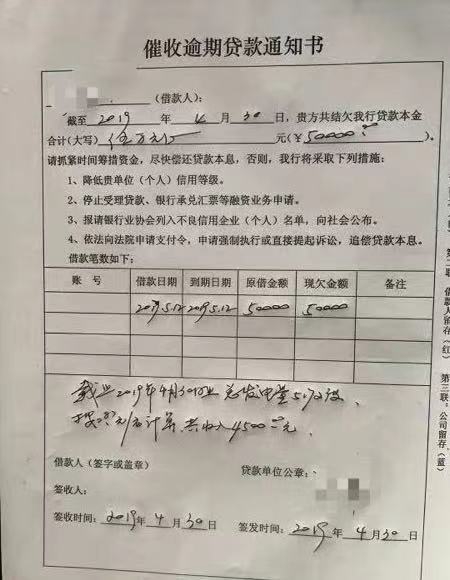 催收逾期贷款通知书
(借款人):
截至 2019 年 4 月 30 日，贵方共结欠我行贷款本金
合计(大写) 伍万元 元(￥50000)。
请抓紧时间筹措资金，尽快偿还贷款本息，否则，我行将采取下列措施:
1、降低贵单位（个人）信用等级。
2、停止受理贷款、银行承兑汇票等融资业务申请。
3、报请银行业协会列入不良信用企业（个人）名单，向社会公布。
4、依法向法院申请支付令，申请强制执行或直接提起诉讼，追偿贷款本息。
借款笔数如下:
账 号 借款日期 到期日期 原借金额 现欠金额 备注
2019.5.12 50000 50000
截止2019年4月30日 总发电量
计算 共收入4500元
借款人（签字或盖章） 贷款单位公章:
签收人:
签收时间: 2019 年 4 月 30 日 签发时间: 2019 年 4 月 30 日
借款人留存（红） 第三联: 公司留存（蓝）